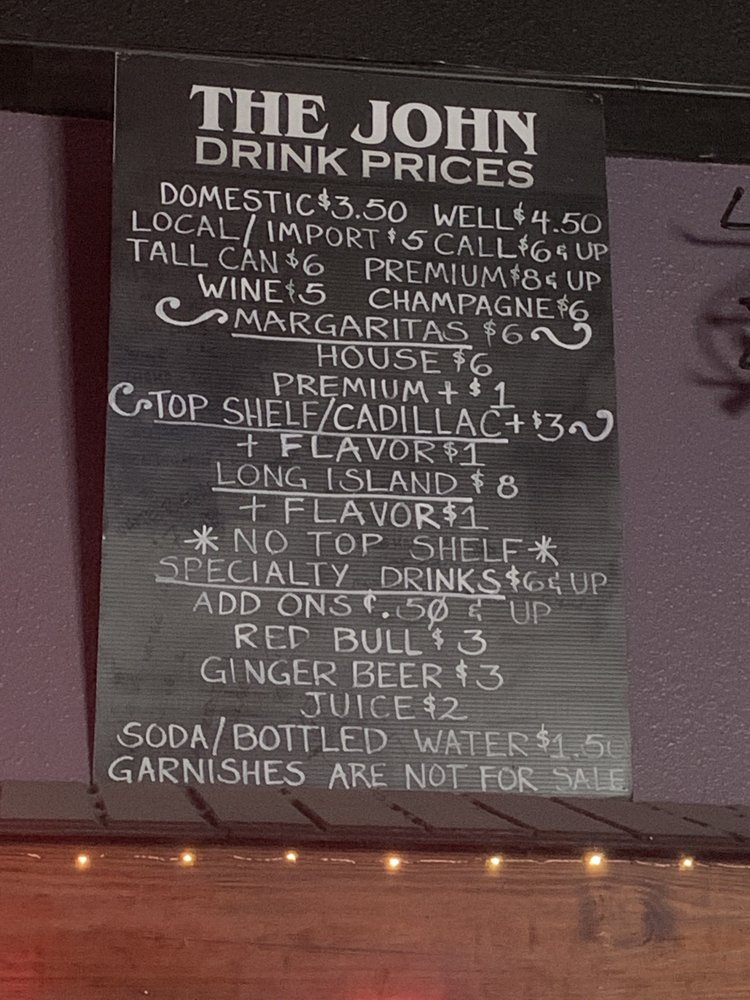 THE JOHN
DRINK PRICES
DOMESTIC $3.50 WELL $4.50
LOCAL/IMPORT $5 CALL $6 & UP
TALL CAN $6 PREMIUM $8 & UP
WINE $5 CHAMPAGNE $6
MARGARITAS $6
HOUSE $6
PREMIUM + $1
TOP SHELF/CADILLAC + $3
+ FLAVOR $1
LONG ISLAND $8
+ FLAVOR $1
* NO TOP SHELF *
SPECIALTY DRINKS $6 & UP
ADD ONS ¢.50 & UP
RED BULL $3
GINGER BEER $3
JUICE $2
SODA/BOTTLED WATER $1.50
GARNISHES ARE NOT FOR SALE